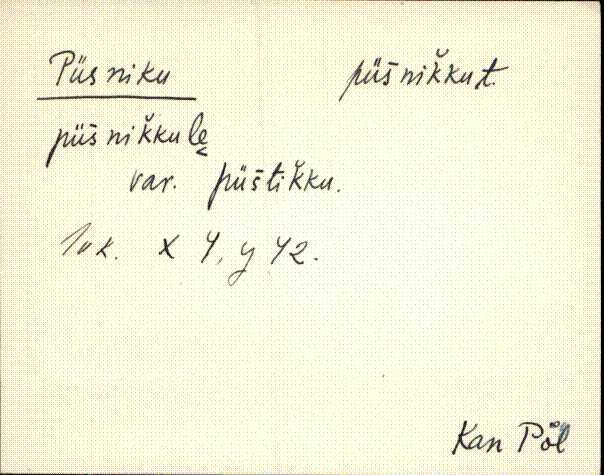 Püsniku püs̆nik̆kut.
püs̆nik̆kule̬
var. püs̆tik̆ku.
lok. X 4, y 42.
Kan Põl